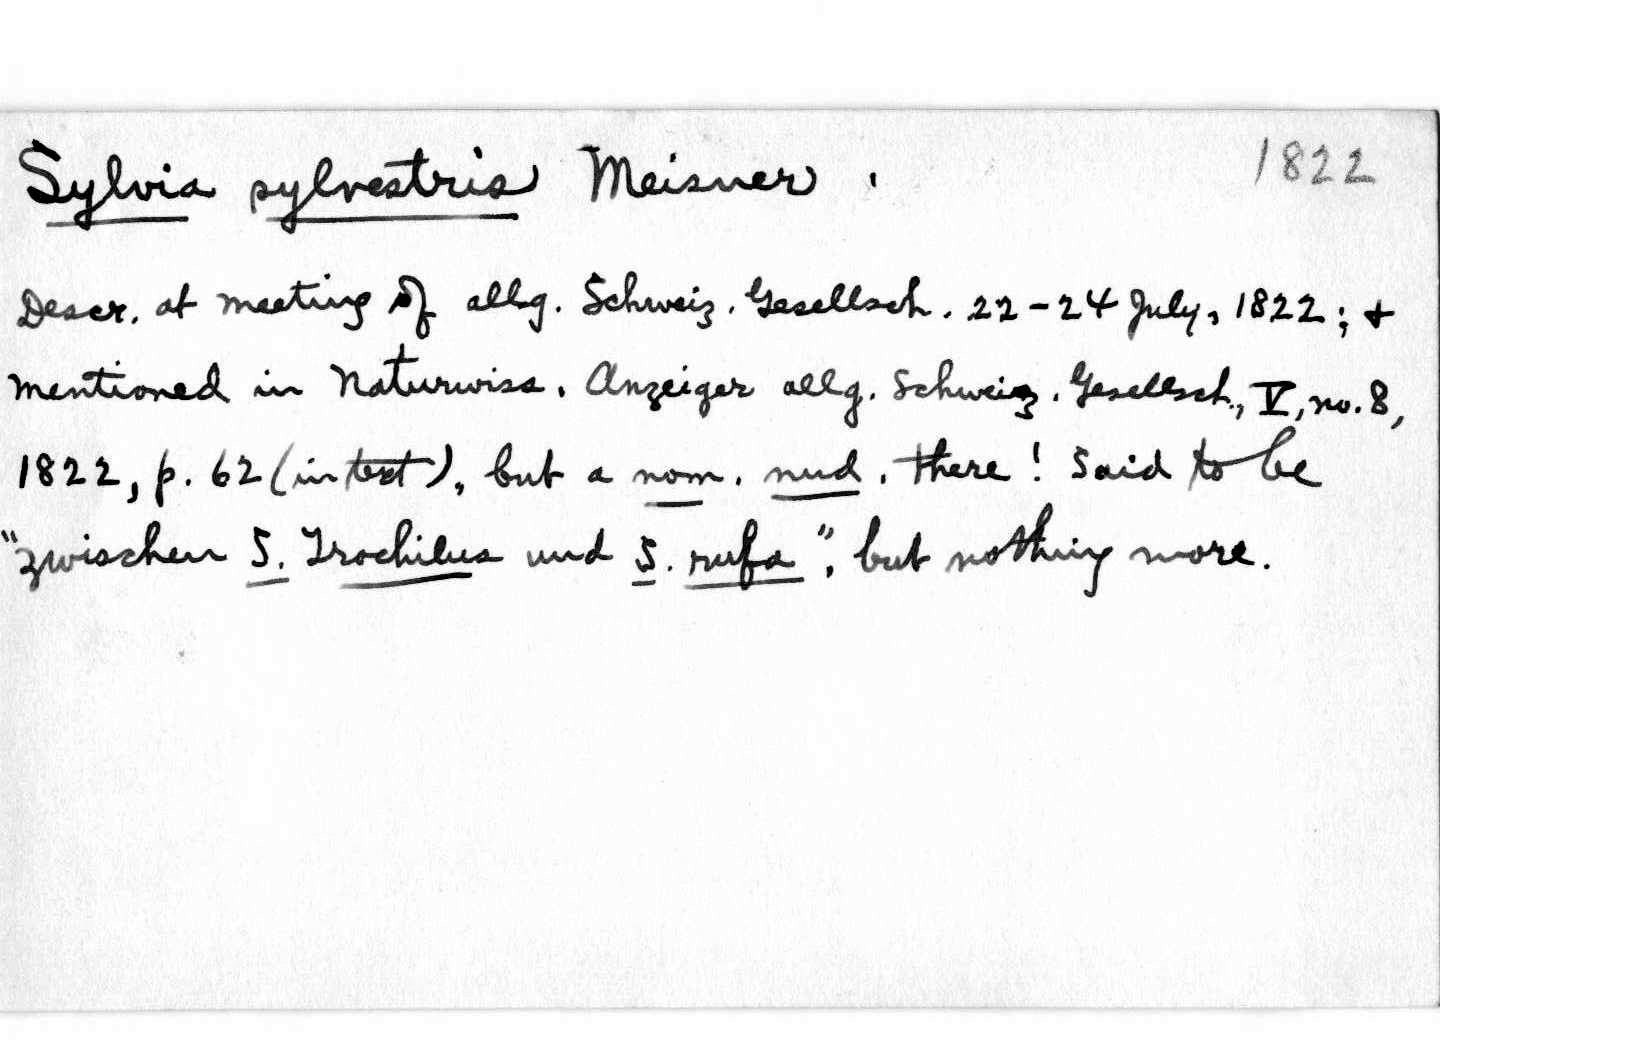 Sylvia sylvestris Meisner. 1822
Descr. at meeting of allg. Schweiz. Gesellsch. 22-24 July, 1822; &
mentioned in Naturwiss. Anzeiger allg. Schweiz. Gesellsch., V, no. 8,
1822, p. 62 (in text), but a nom. nud. there! Said to be
"zwischen S. Trochilus und S. rufa", but nothing more.